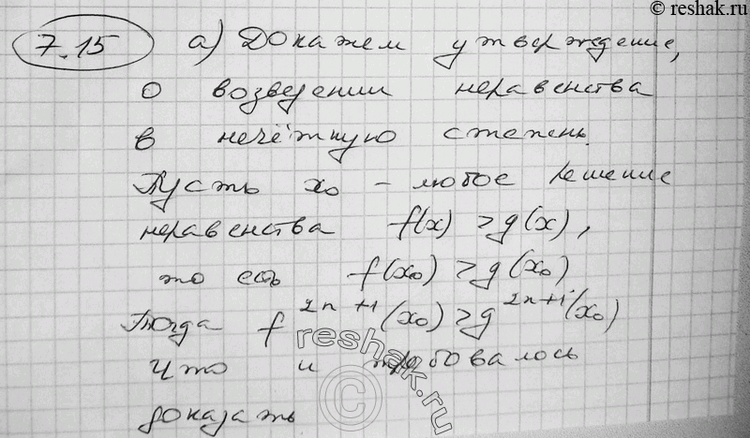 © reshak.ru
7.15 а) Докажем утверждение,
о возведении неравенства
в нечётную степень.
Пусть x₀ – любое решение
неравенства f(x) > g(x),
то есть f(x₀) > g(x₀)
Тогда f²ⁿ⁺¹(x₀) > g²ⁿ⁺¹(x₀)
Что и требовалось
доказать
reshak.ru
©